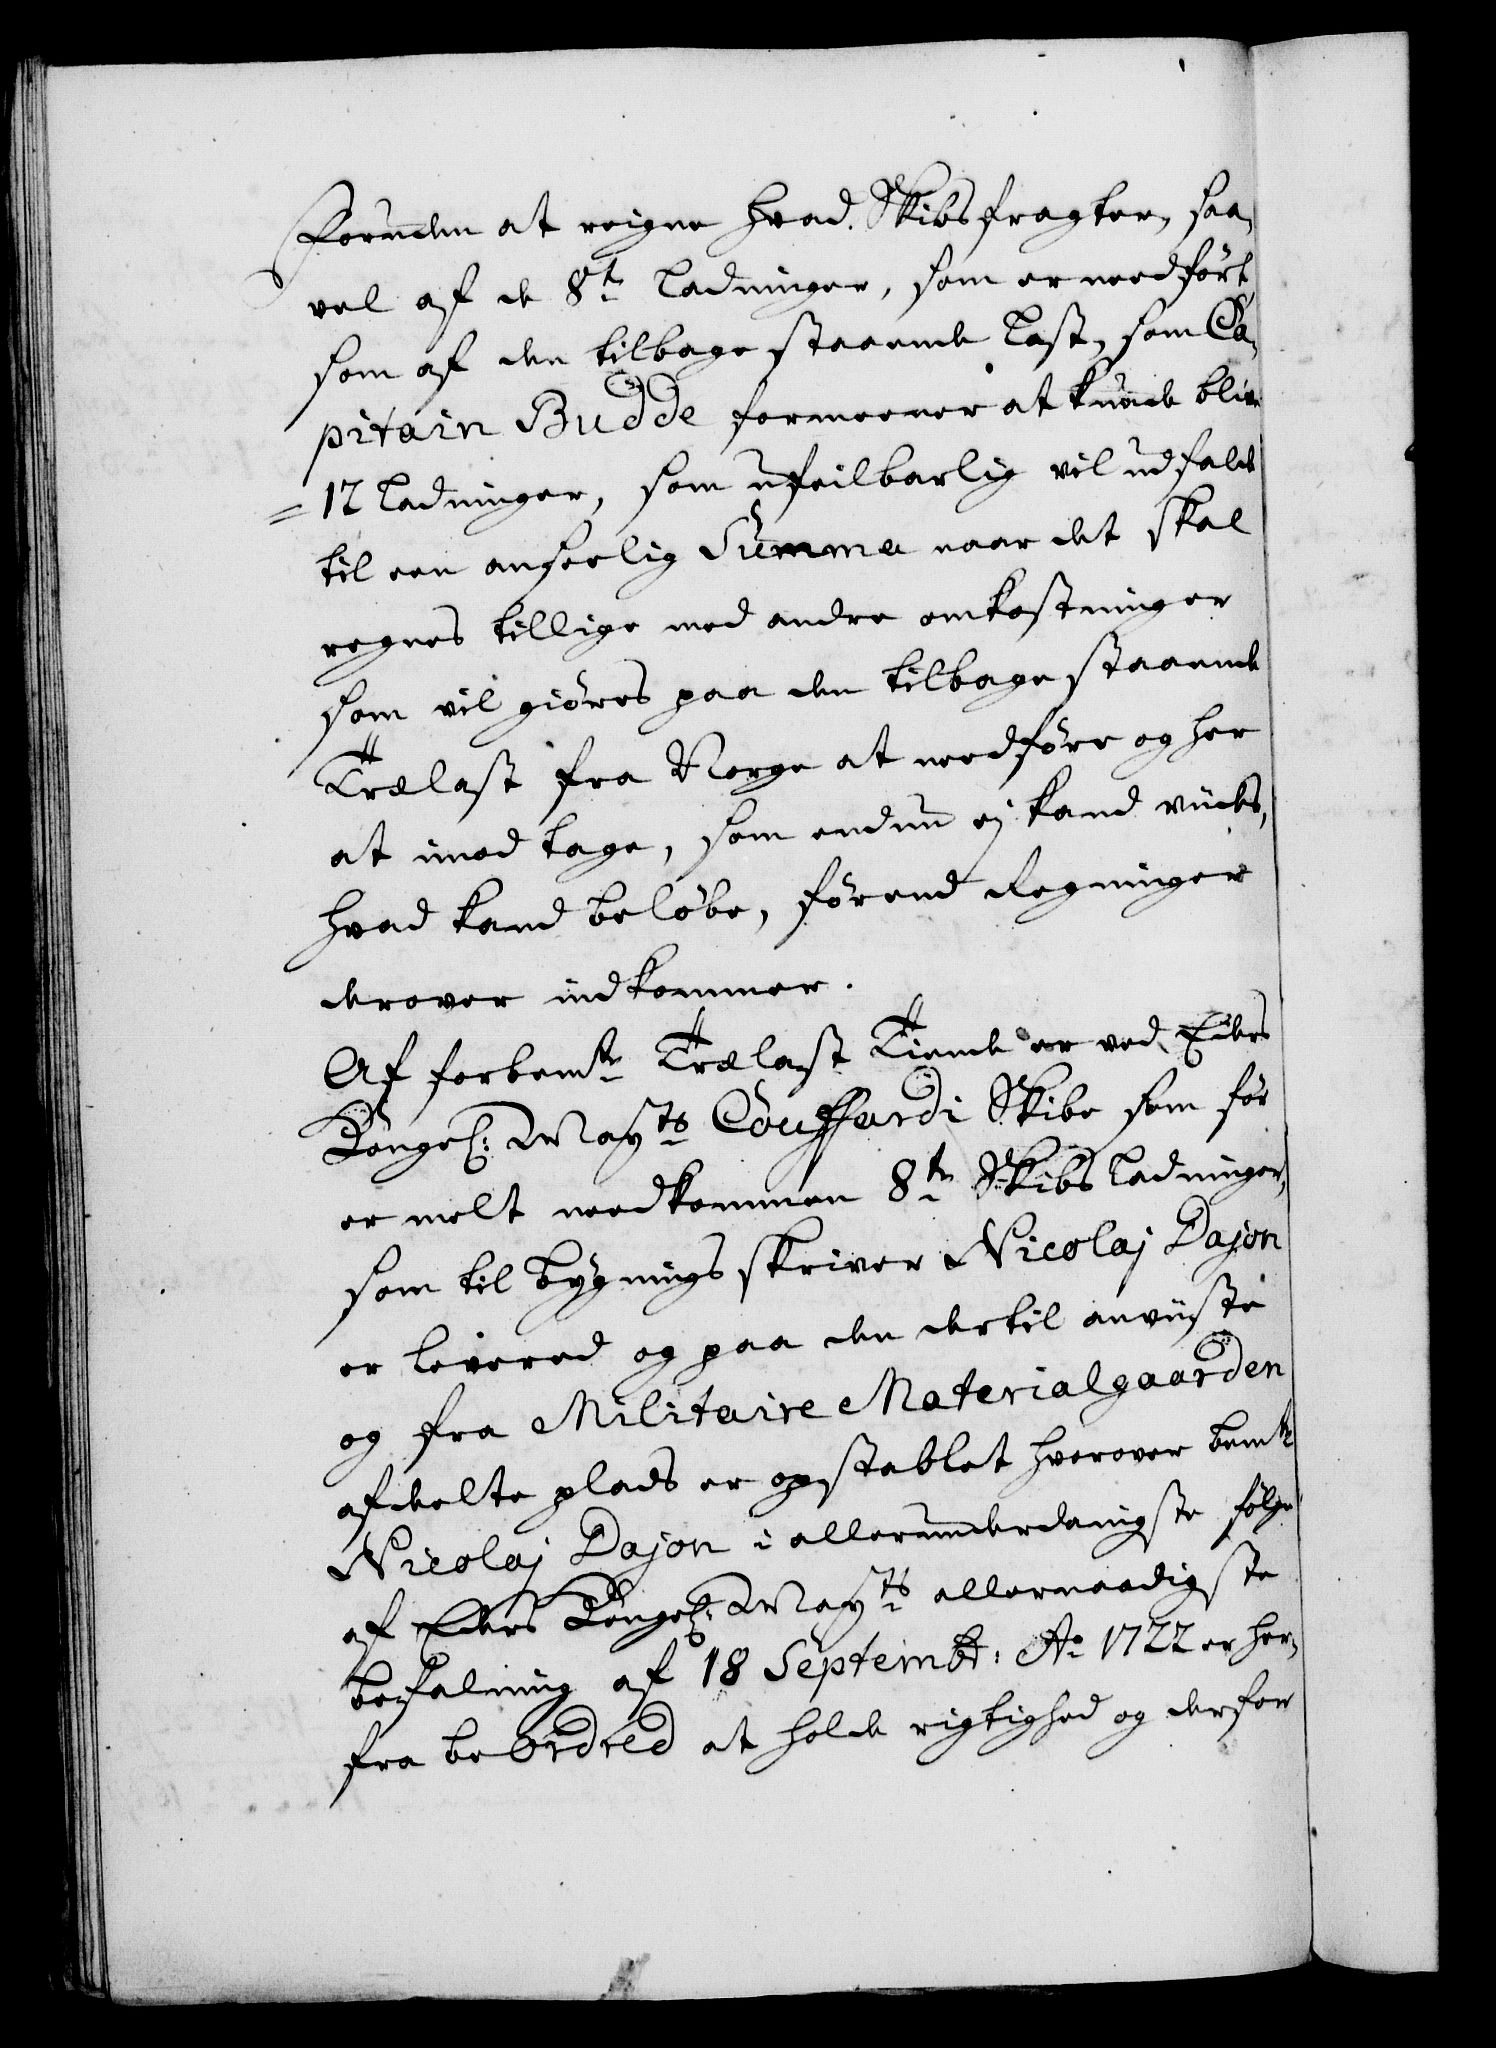 Foruden at reigne hvad Skibsfragter, saa-
vel af de 8te Ladninger, som er needført,
som af den tilbage staaende Last, som Ca-
pitain Budde formeener at kunde blive
=12 Ladninger, som ufeilbarlig vil udfalde
til een anseelig Summa naar det skal
regnes tillige med andre omkostninger
som vil giöres paa den tilbage staaende
Trælast fra Norge at needföre og her
at imod tage, som endnu ej kand viides,
hvad kand belöbe, förend Regninger
derover indkommer.
Af forbemte Trælast Tiende er ved Eders
Kongel: Mayts Couffardi Skibe som för
er melt needkommen 8te Skibs Ladninger,
som til bygnings skriver Nicolaj Dajon
er levered og paa den dertil anviiste
og fra Militaire Materialgaarden
afdeelte plads er opstablet hvorover bemte
Nicolaj Dajon i allerunderdanigste fölge
af Eders Kongel: Mayts allernaadigste
befalning af 18 Septembr: Ao 1722 er her-
fra beordred at holde rigtighed og derfor